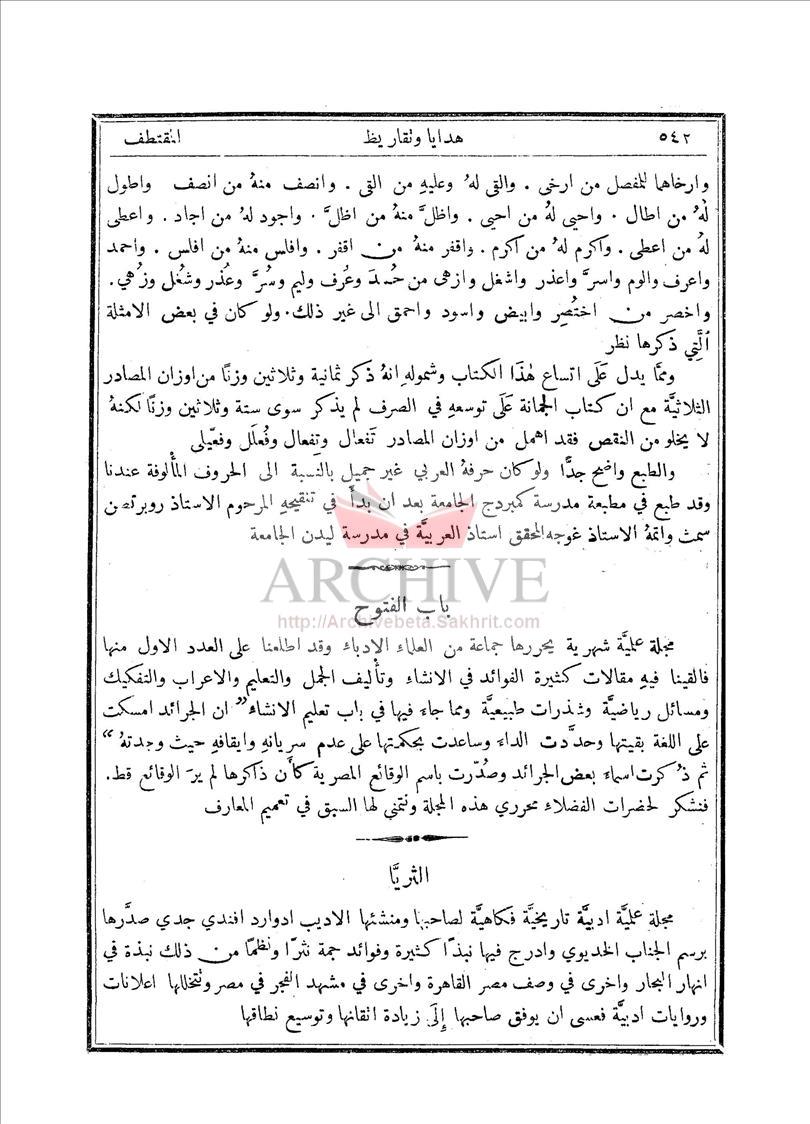 ٥٤٢ هدايا وتقاريظ المقتطف
وارخاها للمفصل من ارخى . والقى لهُ وعليهِ من القى . وانصف منهُ من انصف واطول
لهُ من اطال . واحيى لهُ من احيى . واظلَّ منهُ من اظلَّ . واجود لهُ من اجاد . واعطى
لهُ من اعطى . واكرم لهُ من اكرم . واقفر منهُ من اقفر . وافلس منهُ من افلس . واحمد
واعرف والوم واسرَّ واعذر واشغل وازهى من حُمدَ وعُرف وليم وسُرَّ وعُذر وشُغل وزُهي.
واخصر من اختُصِر وابيض واسود واحمق الى غير ذلك. ولو كان في بعض الامثلة
الَّتِي ذكرها نظر
وممَّا يدل عَلَى اتساع هٰذَا الكتاب وشمولهِ انهُ ذكر ثمانية وثلاثين وزنًا من اوزان المصادر
الثلاثيَّة مع ان كتاب الجمانة عَلَى توسعهِ في الصرف لم يذكر سوى ستة وثلاثين وزنًا لكنهُ
لا يخلو من النقص فقد اهمل من اوزان المصادر تَفعال وتِفعال وفُعلَل وفعّيلى
والطبع واضح جدًّا ولو كان حرفهُ العربي غير جميل بالنسبة الى الحروف المأْلوفة عندنا
وقد طبع في مطبعة مدرسة كمبردج الجامعة بعد ان بدأَ في تنقيحهِ المرحوم الاستاذ روبرتصن
سمث واتمهُ الاستاذ غوجه المحقق استاذ العربيَّة في مدرسة ليدن الجامعة
ARCHIVE
باب الفتوح
http://Archivebeta.Sakhrit.com
مجلة علميَّة شهرية يحررها جماعة من العلماء الادباء وقد اطلعنا على العدد الاول منها
فالفينا فيهِ مقالات كثيرة الفوائد في الانشاء وتأْليف الجمل والتعليم والاعراب والتفكيك
ومسائل رياضيَّة وشذرات طبيعيَّة ومما جاءَ فيها في باب تعليم الانشاء " ان الجرائد امسكت
على اللغة بقيتها وحدَّدت الداء وساعدت بحكمتها على عدم سريانهِ وايقافهِ حيث وجدتهُ "
ثم ذُكرت اسماءُ بعض الجرائد وصُدّرت باسم الوقائع المصرية كأَن ذاكرها لم يرَ الوقائع قط.
فنشكر لحضرات الفضلاء محرري هذه المجلة ونتمنى لها السبق في تعميم المعارف
الثريَّا
مجلة علميَّة ادبيَّة تاريخيَّة فكاهيَّة لصاحبها ومنشئها الاديب ادوارد افندي جدي صدَّرها
برسم الجناب الخديوي وادرج فيها نبذًا كثيرة وفوائد جمة نثرًا ونظمًا من ذلك نبذة في
انهار البحار واخرى في وصف مصر القاهرة واخرى في مشهد الفجر في مصر ونتخللها اعلانات
وروايات ادبيَّة فعسى ان يوفق صاحبها إِلَى زيادة اتقانها وتوسيع نطاقها